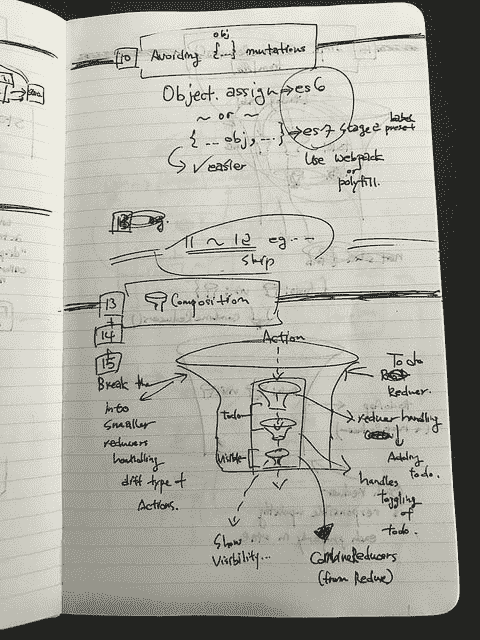 obj
10 Avoiding {...} mutations
Object.assign → es6
~ or ~
{...obj, ...} → es7 stage 2 babel preset
✓easier
Use webpack
or
polyfill.
eg.
11 ~ 12 eg...
Skip
13 Composition
+
14
+
15
Action
Break the
into
smaller
reducers
handling
diff type +
Actions.
Todo
Visible
To do
Reducer.
reducer handling
Adding
todo.
handles
toggling
of
todo.
Show
Visibility...
CombineReducers
(from Redux)